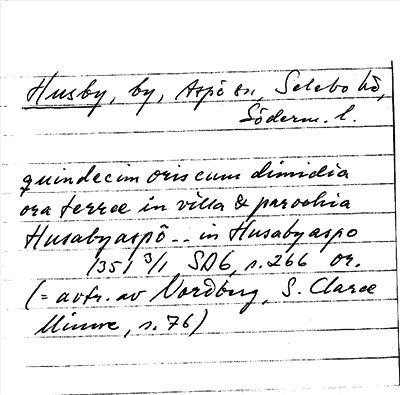 Husby, by, Aspö sn, Selebo hd,
Söderm. l.
quindecim oris cum dimidia
ora terree in villa & parochia
Husabyaspö -- in Husabyaspo
1351 3/1 SD6, s. 266 or.
(= avtr. av Nordberg, S. Claree
Minne, s. 76)